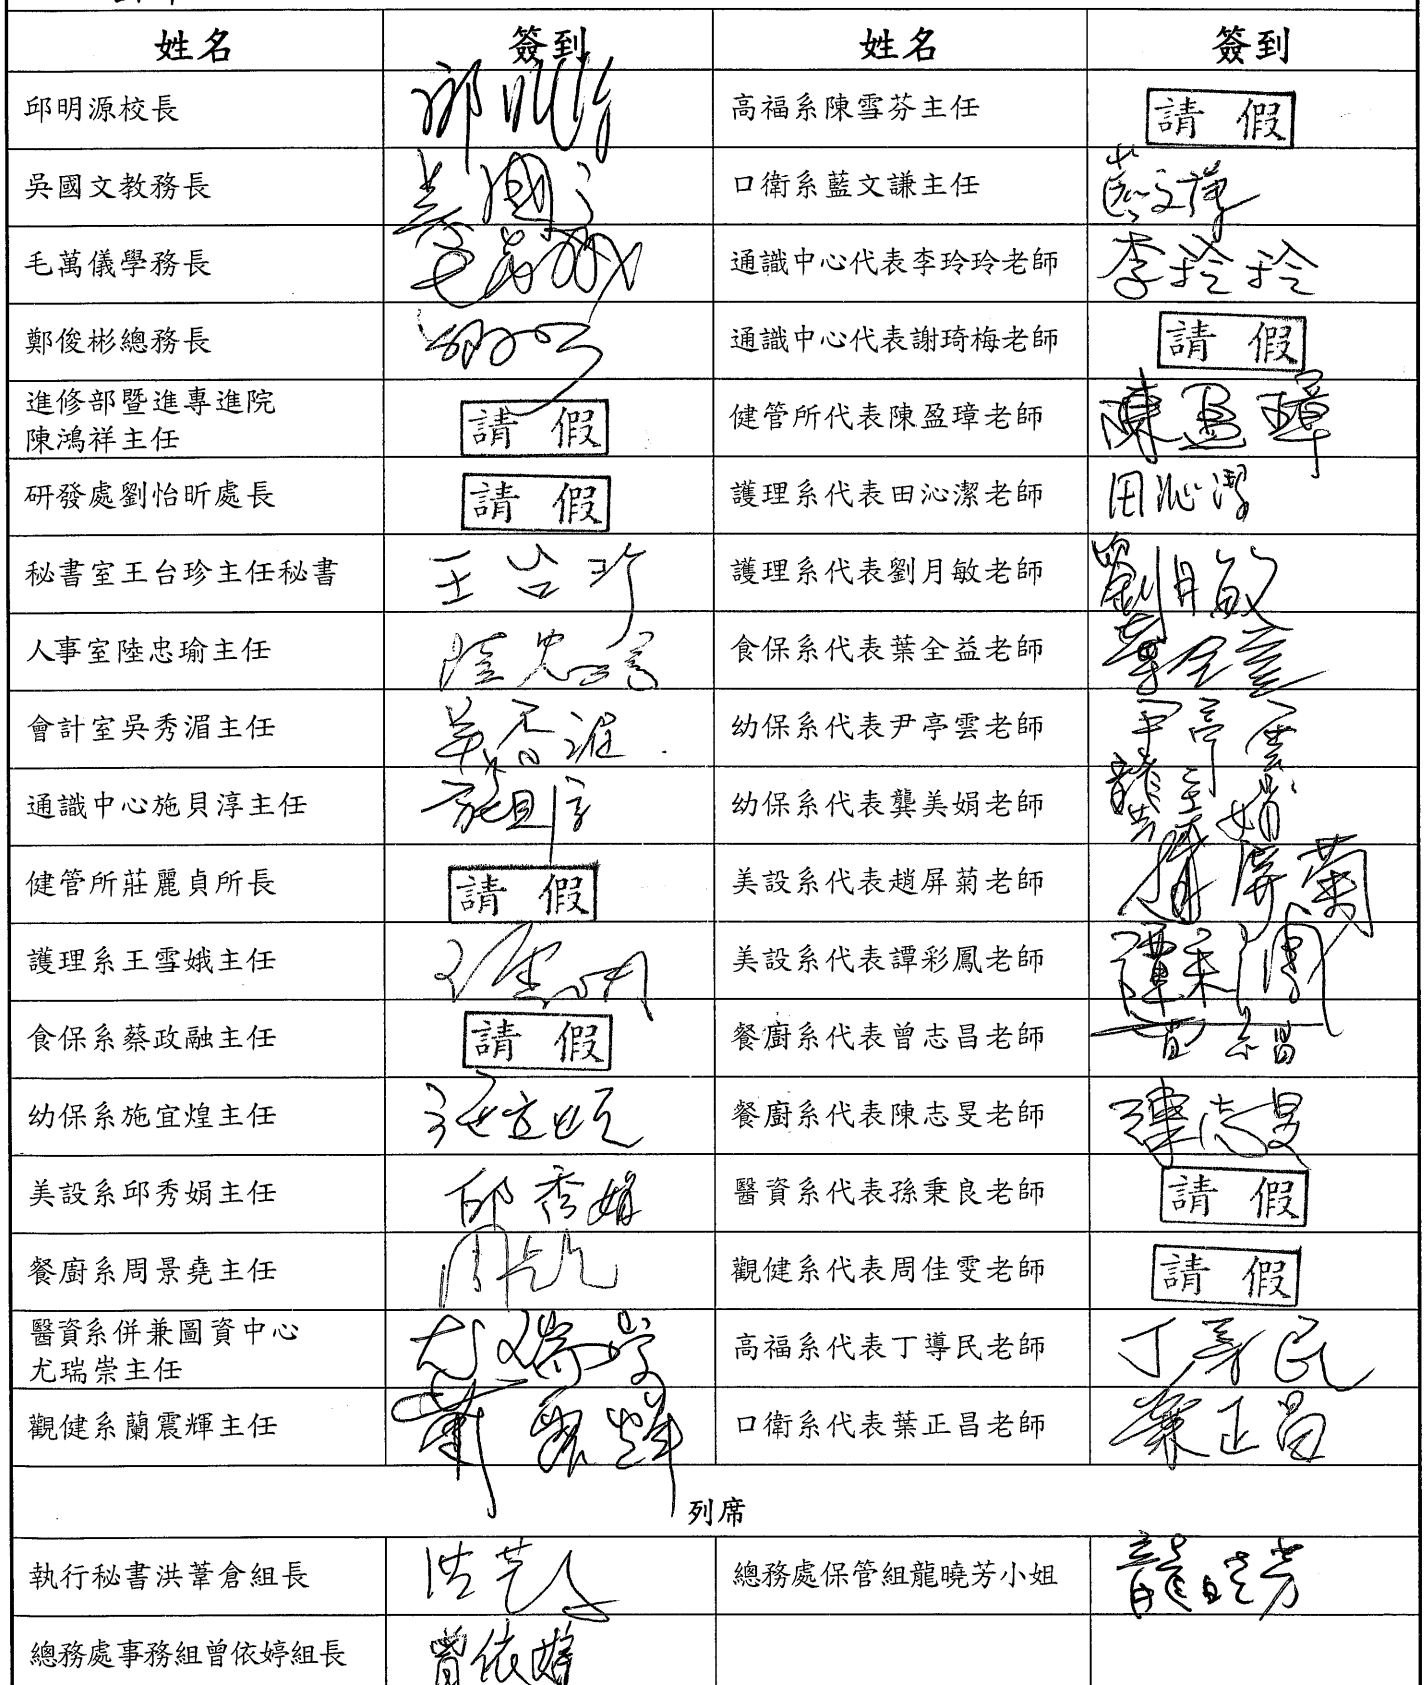 姓名 簽到 姓名 簽到
邱明源校長 高福系陳雪芬主任 請 假
吳國文教務長 吳國文 口衛系藍文謙主任 藍文謙
毛萬儀學務長 毛萬儀 通識中心代表李玲玲老師 李玲玲
鄭俊彬總務長 通識中心代表謝琦梅老師 請 假
進修部暨進專進院
陳鴻祥主任 請 假 健管所代表陳盈璋老師 陳盈璋
研發處劉怡昕處長 請 假 護理系代表田沁潔老師 田沁潔
秘書室王台珍主任秘書 王台珍 護理系代表劉月敏老師 劉月敏
人事室陸忠瑜主任 陸忠瑜 食保系代表葉全益老師 葉全益
會計室吳秀湄主任 吳秀湄 幼保系代表尹亭雲老師 尹亭雲
通識中心施貝淳主任 施貝淳 幼保系代表龔美娟老師 龔美娟
健管所莊麗貞所長 請 假 美設系代表趙屏菊老師 趙屏菊
護理系王雪娥主任 王雪娥 美設系代表譚彩鳳老師 譚彩鳳
食保系蔡政融主任 請 假 餐廚系代表曾志昌老師 曾志昌
幼保系施宜煌主任 施宜煌 餐廚系代表陳志旻老師 陳志旻
美設系邱秀娟主任 邱秀娟 醫資系代表孫秉良老師 請 假
餐廚系周景堯主任 觀健系代表周佳雯老師 請 假
醫資系併兼圖資中心
尤瑞崇主任 尤瑞崇 高福系代表丁導民老師 丁導民
觀健系蘭震輝主任 蘭震輝 口衛系代表葉正昌老師 葉正昌
列席
執行秘書洪葦倉組長 總務處保管組龍曉芳小姐 龍曉芳
總務處事務組曾依婷組長 曾依婷